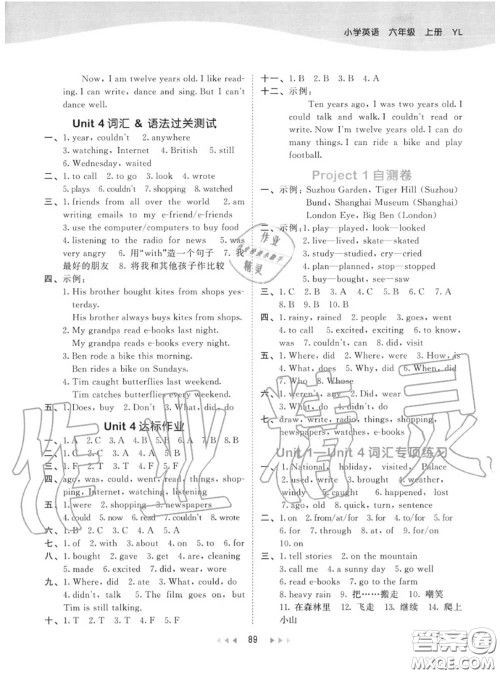 小学英语 六年级 上册 YL
Now, I am twelve years old. I like read-
ing. I can write, dance and sing. But I can't
dance well.
Unit 4 词汇 & 语法过关测试
一、1. year, couldn't 2. anywhere
3. watching, Internet 4. British 5. still
6. Wednesday, waited
二、1. to call 2. to go 3. look 4. wrote
5. plays 6. couldn't 7. shopping 8. watched
三、1. friends from all over the world 2. am
writing emails to my e-friend/e-friends
3. use the computer/computers to buy food
4. listening to the radio for news 5. was
very angry 6. 用"with"造一个句子 7. 我
最好的朋友 8. 将我和其他孩子作比较
四、示例:
1. His brother bought kites from shops yes-
terday.
His brother always buys kites from shops.
2. My grandpa read e-books last night.
My grandpa reads e-books every night.
3. Ben rode a bike this morning.
Ben rides a bike on Sundays.
4. Tim caught butterflies last weekend.
Tim catches butterflies every weekend.
五、1. Does, buy 2. Don't 3. What, did, do
Unit 4 达标作业
一、1. A 2. C 3. A 4. B 5. B 6. A 7. B 8. B
二、1. B 2. C 3. B 4. A 5. C
三、1. F 2. T 3. F 4. T 5. T
四、ago, was, could, went, read, things, shop-
ping, Internet, watching, listening
五、1. were 2. shopping 3. newspapers
4. could 5. now 6. read 7. couldn't 8. wrote
六、1. B 2. C 3. C 4. A 5. A
七、1. of 2. with 3. about 4. on 5. for
八、1. bought 2. gave 3. get 4. are, cleaning
5. made 6. excited 7. did, wear, wore
九、1. Where, did 2. ate 3. What, could, do
4. didn't, talk 5. The film goes on, but
Tim is still talking.
十、1. T 2. T 3. F 4. T 5. F
十一、1. B 2. A 3. C 4. B 5. B
十二、示例:
Ten years ago, I was two years old. I
could talk and walk. I couldn't read or
write. Now I'm twelve years old. I can do
many things. I can ride a bike and play
football.
Project 1 自测卷
一、示例: Suzhou Garden, Tiger Hill (Suzhou)
Bund, Shanghai Museum (Shanghai)
London Eye, Big Ben (London)
二、1. play—played look—looked
2. live—lived skate—skated
3. study—studied cry—cried
4. plan—planned stop—stopped
5. buy—bought see—saw
三、1. C 2. B 3. A 4. C 5. A 6. C 7. A
8. B 9. B 10. A
四、1. rainy, rained 2. people 3. goes, went
4. to call 5. excited, exciting 6. to visit
7. cooking 8. couldn't 9. can, did, visit
五、1. When, did 2. Where, did 3. How's
4. What, is 5. How, did 6. What, did, do
7. Who 8. Whose
六、1. weren't, any 2. Did, wear
3. What, do 4. What, did, do
七、draw, write, radio, things, shopping,
newspapers, watches, e-books
Unit 1—Unit 4 词汇专项练习
一、1. National, holiday, visited, Palace
2. used, made, wrote 3. brought 4. weather,
windy 5. caught 6. happened, lost
7. ago, old 8. quick, turn, sentence
二、1. on 2. from/at 3. for 4. to/for 5. on/for
6. for 7. through 8. at/of 9. for/on
10. at
三、1. tell stories 2. on the mountain
3. call me 4. a sunny day 5. go well
6. read e-books 7. go to the farm
8. heavy rain 9. hungry 10. 把……搬走 10. 嘲笑
11. 在森林里 12. 飞走 13. 继续 14. 爬上
小山
89
作业精灵